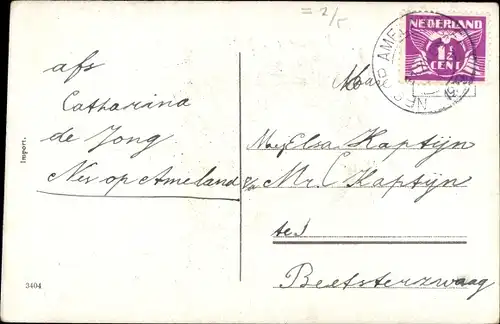 = 2/5
NEDERLAND
1½
CENT
NES OP AMEL
afs
Catharina
de Jong
Nes op Ameland
Import.
3404
Mej Elsa Kaptijn
p/a Mr. C Kaptijn
te
Beetsterzwaag